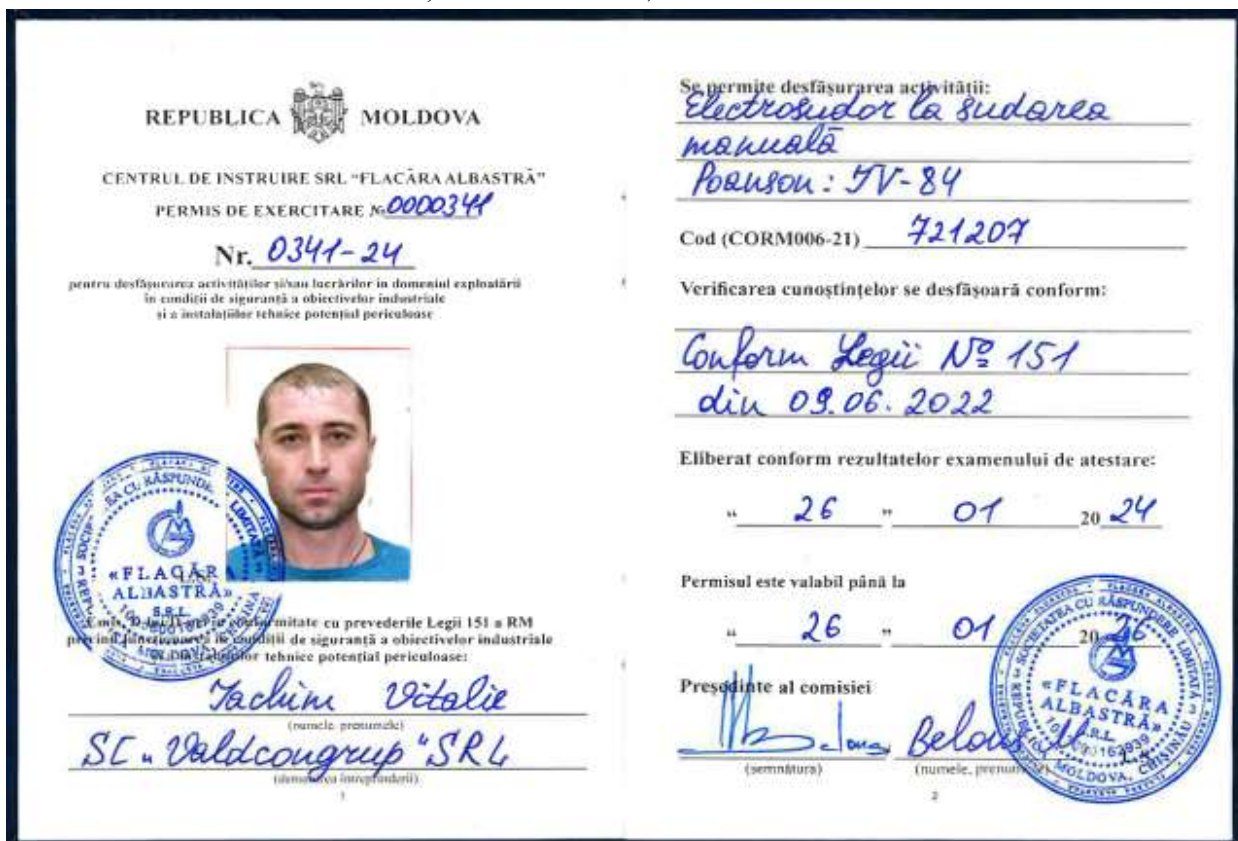 REPUBLICA MOLDOVA
CENTRUL DE INSTRUIRE SRL "FLACĂRA ALBASTRĂ"
PERMIS DE EXERCITARE № 0000341
Nr. 0341-24
pentru desfășurarea activităților și/sau lucrărilor in domeniul exploatării
în condiții de siguranță a obiectivelor industriale
și a instalațiilor tehnice potențial periculoase
«FLACĂRA
ALBASTRĂ»
S.R.L.
conformitate cu prevederile Legii 151 a RM
privind funcționarea în condiții de siguranță a obiectivelor industriale
tehnice potențial periculoase:
Iachim Vitalie
(numele, prenumele)
SC "Valdcongrup" SRL
(denumirea întreprinderii)
1
Se permite desfășurarea activității:
Electrosudor la sudarea
manuală
Poanson: IV-84
Cod (CORM006-21) 721207
Verificarea cunoștințelor se desfășoară conform:
Conform Legii № 151
din 09.06.2022
Eliberat conform rezultatelor examenului de atestare:
" 26 " 01 20 24
Permisul este valabil până la
" 26 " 01 20 26
Președinte al comisiei
Belous
(semnătura) (numele, prenumele)
«FLACĂRA
ALBASTRĂ»
S.R.L.
MOLDOVA, CHIȘINĂU
2